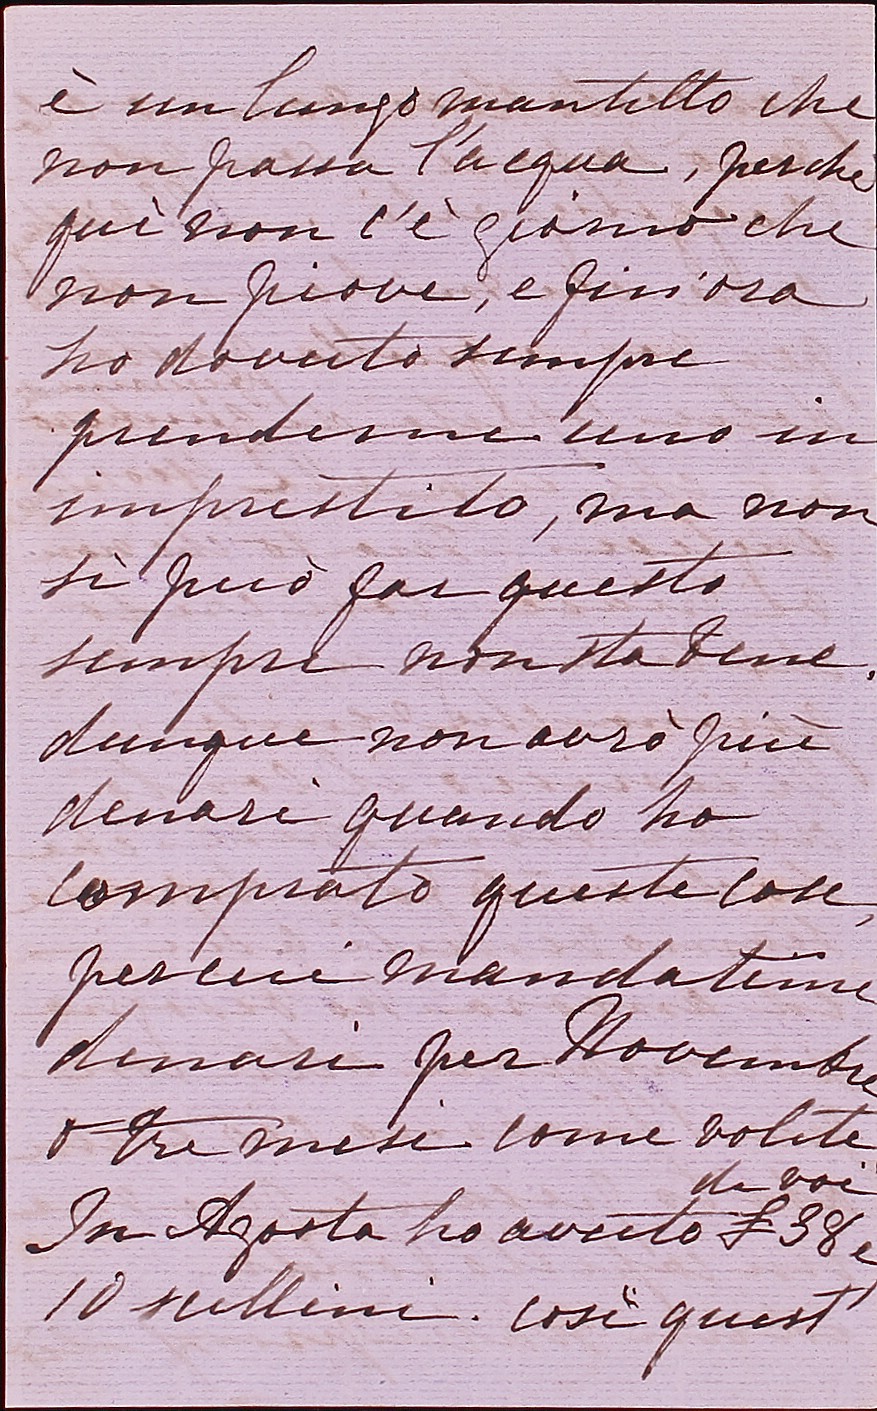 è un lungo mantello che
non passa l'acqua, perchè
quì non c'è giorno che
non piove, e fin'ora
ho dovuto sempre
prenderne uno in
imprestito, ma non
sì può far questo
sempre non sta bene.
dunque non avrò più
denari quando ho
comprato queste cose,
per cui mandatime
denari per Novembre
o tre mesi come volete
da voi
In Agosto ho avuto £38 e
10 scellini. così quest'